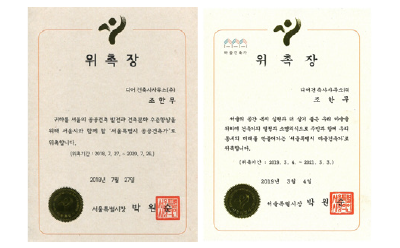 위촉장
디어건축사사무소(주)
조 한 무
귀하를 서울의 공공건축 발전과 건축문화 수준향상을
위해 서울시와 함께 할 "서울특별시 공공건축가"로
위촉합니다.
(위촉기간 : 2018. 7. 27. ~ 2020. 7. 26.)
2018년 7월 27일
서울특별시장 박 원
마을건축가
위 촉 장
디어건축사사무소㈜
조 한 무
마을의 공간 복지 실현과 더 살기 좋은 우리 마을을
위하여
주민과 함께 우리
동네의 미래를 만들어가는 "서울특별시 마을건축가"로
위촉합니다.
(위촉기간 : 2019. 3. 4. ~ 2021. 3. 3.)
2019년 3월 4일
서울특별시장 박 원